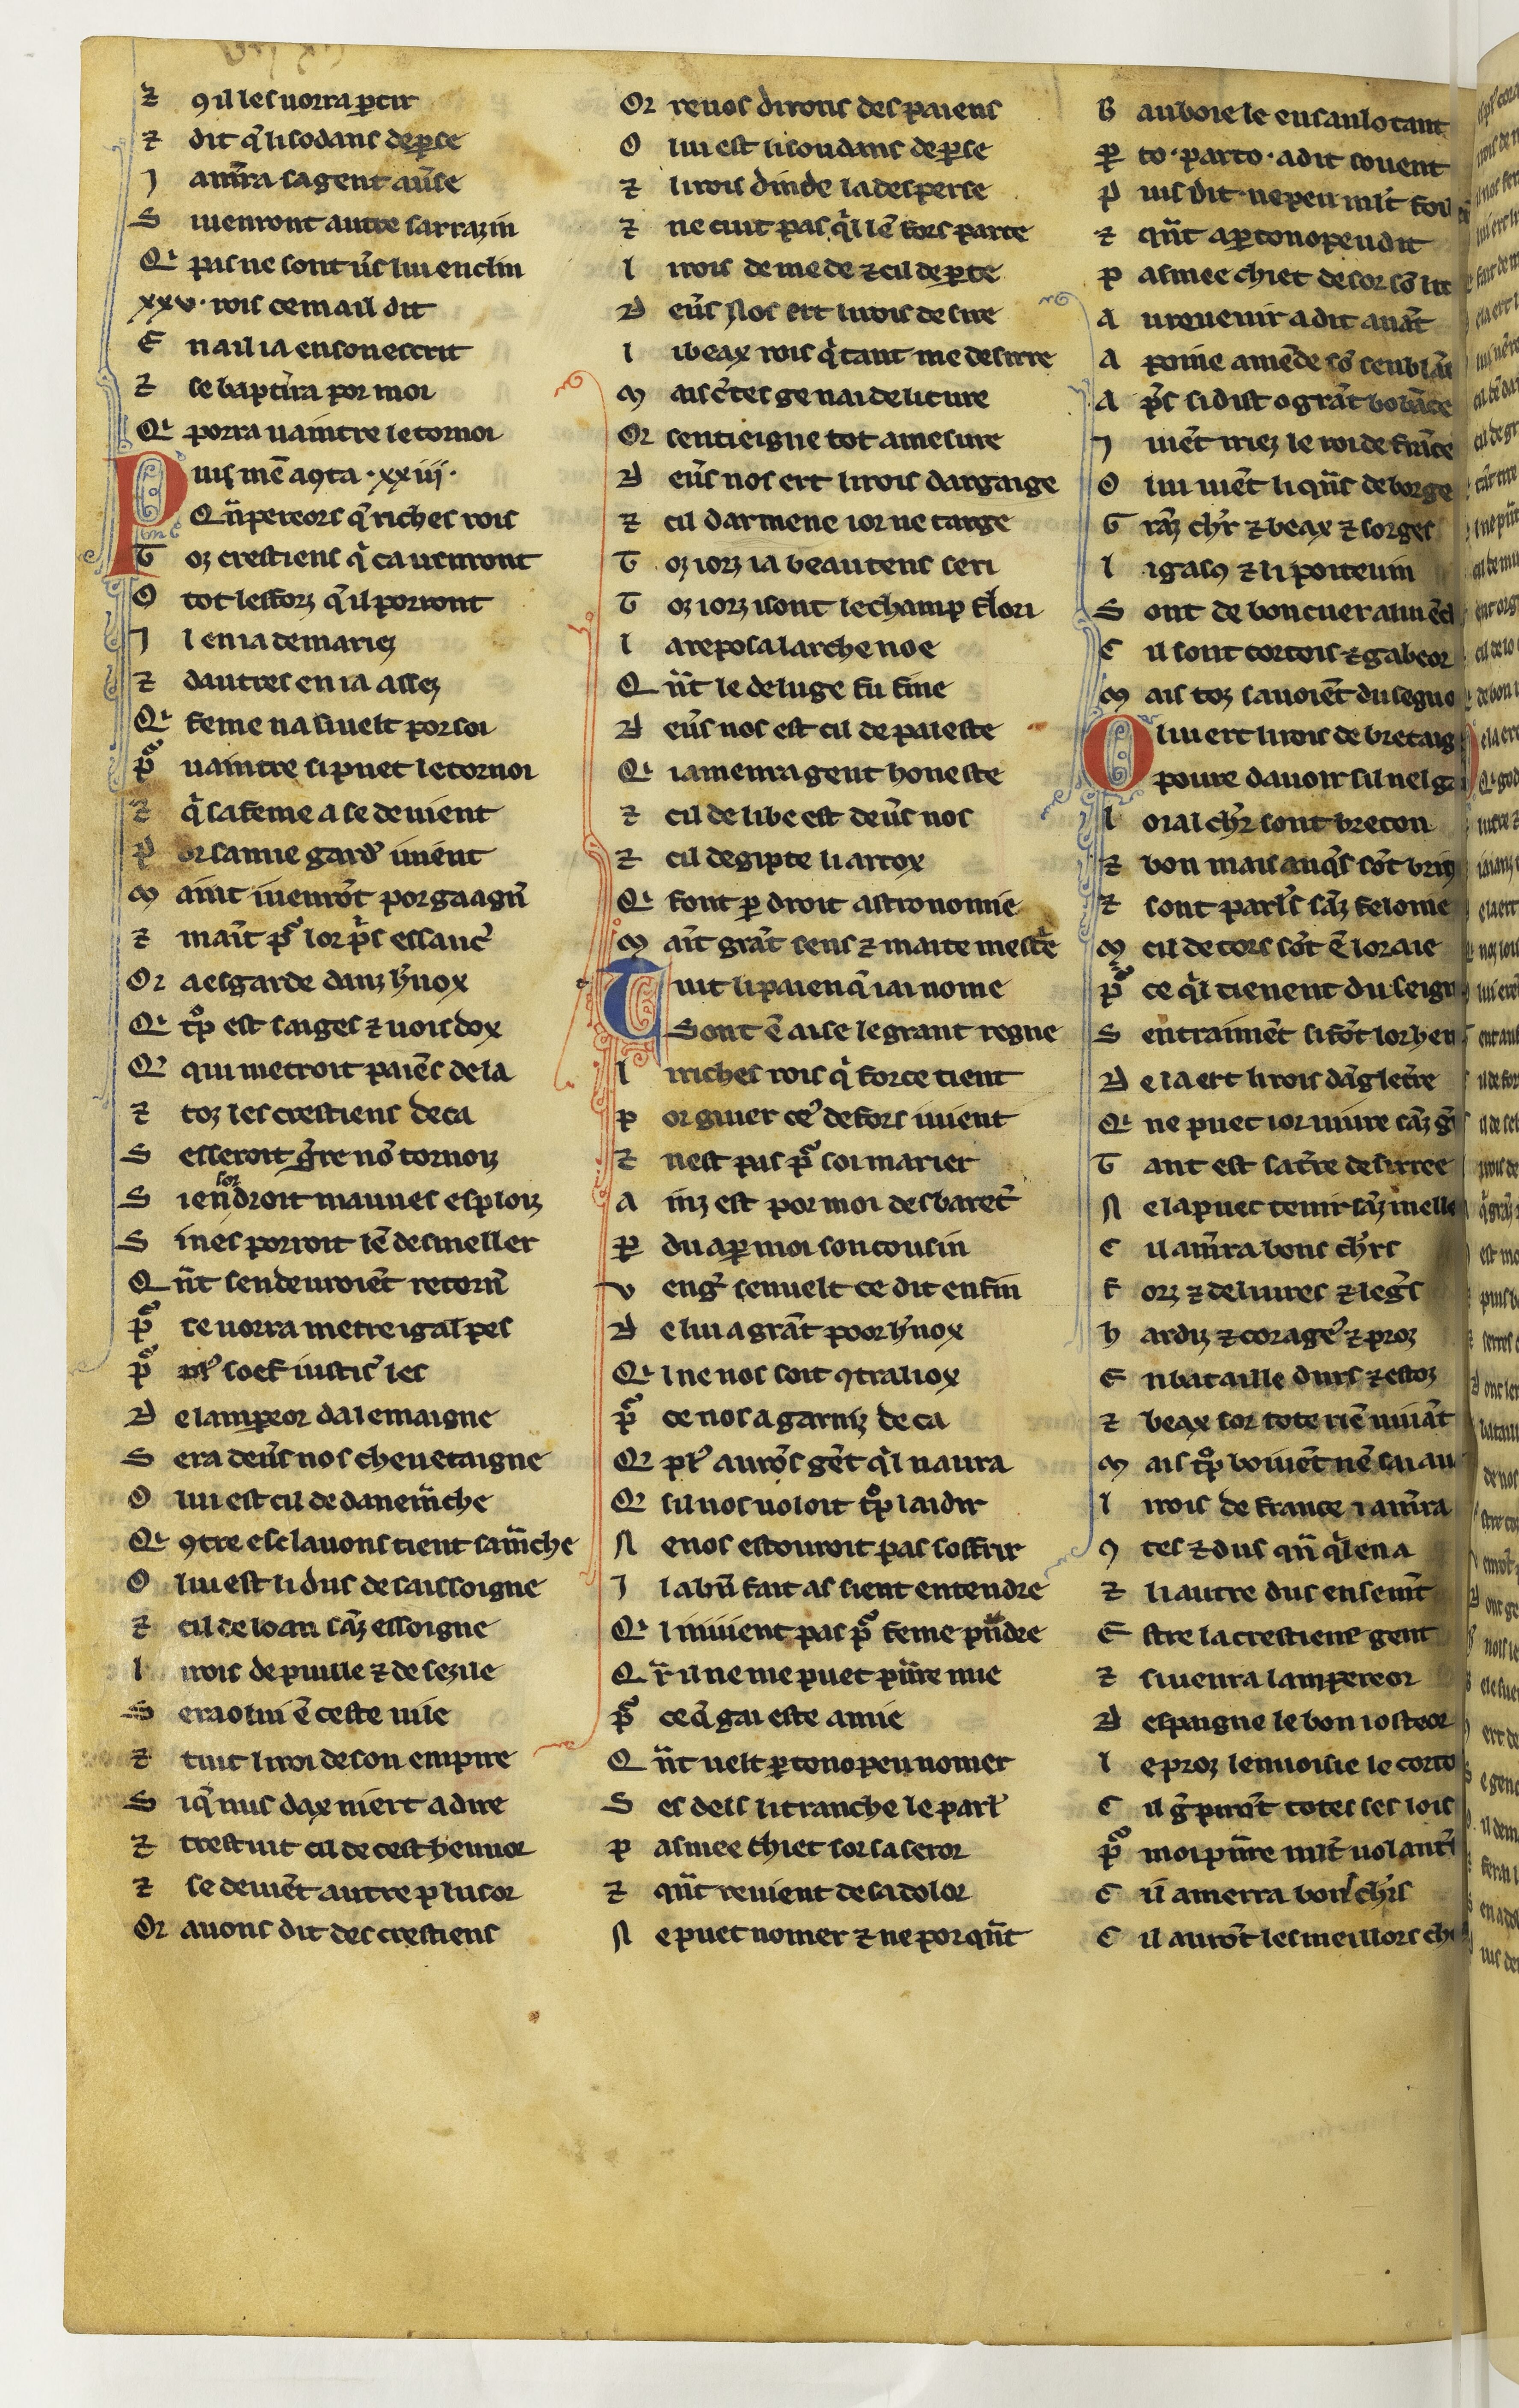 ⁊ ꝯil les uorra ꝑtir
⁊ dit q̃ li sodans de ꝑse
J amr̃a sa gent aũse
S iuenront autre sarrazin
Qͥ pas ne sont ũs lui enclin
xxv· rois ce mail dit
E n ail ia en son escrit
⁊ se baptir̃a por moi
Qͥ porra uaintre le tornoi
Puis mẽ aꝯta ·xxiij·
Qͣ̃ pereors q̃ riches rois
T oz crestiens qͥ ca uenront
O tot lesforz qͥl porront
J l en ia de mariez
⁊ dautres en ia assez
Qͥ feme na si uelt por soi
p̃ uaintre si puet le tornoi
⁊ qͥ sa feme a se deuient
P or samie gardˀ iuient
M aint iuenrõt por gaagñ
⁊ maĩt p̃ lor pͥs essaucˀ
Or aesgarde danz hˀnox
Qͥ tͦp est saiges ⁊ uoisdox
Qͥ qui metroit paiẽs dela
⁊ toz les crestiens deca
S esseroit gͥre nõ tornoiz
S i en lor droit mauues esploiz
S i nes porroit iẽ desmeller
Q ñt sen deuroiẽt retorñ
p̃ ce uorra metre igal pes
p̃ plˀ soef iusticˀ les
D e lamꝑeor dalemaigne
S era deũs nos cheuetaigne
O lui est cil de danem̃che
Qͥ ꝯtre esclauons tient sam̃che
O lui est li dus de saissoigne
⁊ cil de loan sãz essoigne
l irois de puille ⁊ de sezile
S era o lui ẽ ceste uile
⁊ tuit li roi de son empire
S i q̃ nus dax niert a dire
⁊ trestuit cil de cest hennor
⁊ se deuiẽt autre ꝑ lusor
Or auons dit des crestiens
Or reuos dirons des paiens
O lui est li soudans de ꝑse
⁊ li rois dinde la desperse
⁊ ne cuit pas qͥl sẽ fors parte
l irois de mede ⁊ cil de ꝑte
D eũs nos ert li rois de sire
l i beax rois qͥ tant me desirre
M ais c̃tes ge nai de lui cure
Or sen tieigne tot a mesure
D eũs nos ert li rois dargaige
⁊ cil darmene ior ne targe
T oz iorz ia beau tens seri
T oz iorz i sont le champ flori
l a reposa larche noe
Q ñt le deluge fu fine
D eũs nos est cil de paieste
Qͥ iamenra gent honeste
⁊ cil de libe est deũs nos
⁊ cil degipte li artox
Qͥ font ꝑ droit astronomie
M aĩt grãt sens ⁊ mainte mestͥe
Tuit li paien q̃ iai nome
Sont ẽ aise le grant regne
l i riches rois qͥ force tient
P or giuer ceˀ defors iuient
⁊ nest pas p̃ soi marier
A inz est por moi desbaretˀ
P du a ꝑ moi son cousin
V engˀ senuelt ce dit enfin
D e lui a grãt poor hˀnox
Qͥ l ne nos soit ꝯtraliox
p̃ ce nos a garniz de ca
Qͥ plˀ aurõs gẽt qͥl naura
Qͥ sil nos uoloit tͦp laidir
N e nos estouroit pas soffrir
J l a bñ fait as sient entendre
Qͥ l ni uient pas p̃ feme p̃ndre
Q r̃ il ne me puet p̃nre mie
p̃ ce q̃ gai este amie
Q ñt uelt ꝑtonopeu nomer
S es dels li tranche le parlˀ
P asmee chiet sor sa seror
⁊ qñt reuient de sa dolor
N e puet nomer ⁊ ne por qñt
B auboie le en saulotant
P to · parto · a dit souent
P uis dit · nepeu
⁊ qñt a ꝑtonopeu dit
P asmee chiet desor sõ lit
A u reuenir a dit auãt
A poine amẽde sõ senblãt
A pͥs si dist o grãt bobãce
J uiẽt iriez le roi de frãce
O lui uiẽt li qñs de borge
G rãz chˀr ⁊ beax ⁊ sorges
l i gasꝯ ⁊ li poiteuin
S ont de bon cuer
C il sont cortois ⁊ gabeor
M ais toz sauoiẽt du segno
O lui ert li rois de bretaig
poure dauoir sil nel ga
l oial chˀr sont breton
⁊ bon mais auqͥs sõt
⁊ sont parlˀs sãz felonie
M cil de cors sõt ẽ lor aie
p̃ ce qͥl tienent du seign
S entraimẽt si fõt lor hen
D e la ert li rois dãgletˀre
Qͥ ne puet ior uiure sãz gˀ
T ant est sa tˀre desirree
N e la puet tenir sãz melle
C il amr̃a bons chˀrs
F orz ⁊ deliures ⁊ legˀs
H ardiz ⁊ corageˀ ⁊ proz
E n bataille durs ⁊ estoz
⁊ beax sor tote riẽ uiuãt
M ais tͦp boiuẽt nẽ sai au
l i rois de france i amr̃a
ꝯ tes ⁊ dus qñ qͥl en a
⁊ li autre duc ensemt̃
E stre la crestiene gent
⁊ si uenra lampereor
D espaigne le bon iosteor
l e proz lenuoisie le corto
C il gͥpirõt totes ses lois
p̃ moi p̃nre mlˀt uolantˀ
C il amerra bons chˀrs
C il aurõt les meillors ch